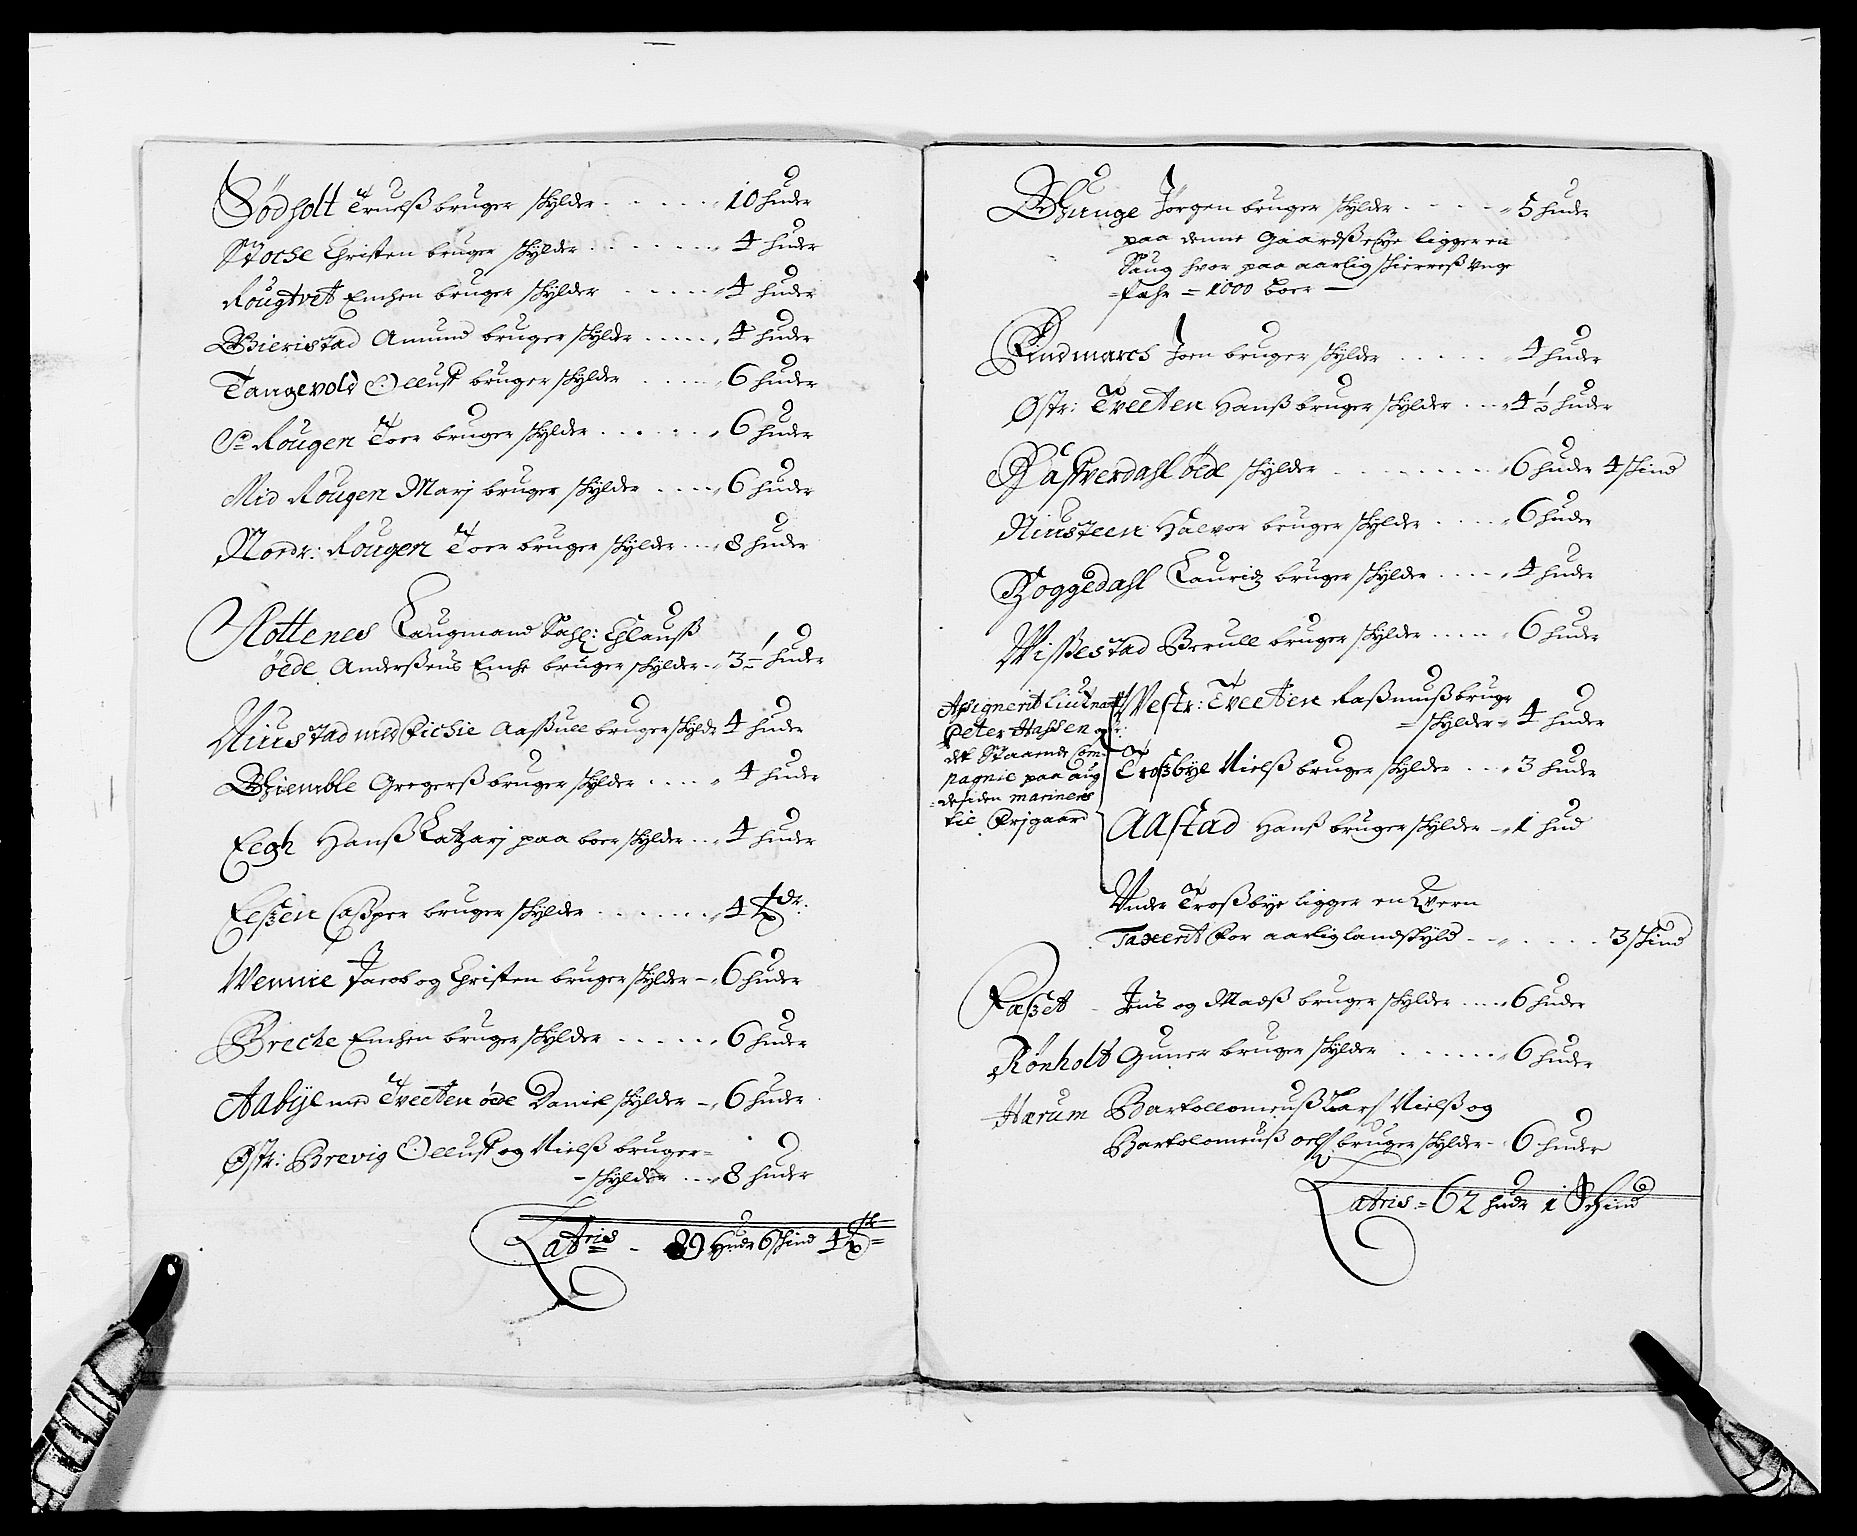 Södholt Truelß bruger skylder - - - - - 10 huder
Störche Christen bruger skylder - - - - - 4 huder
Rougtvet Emchen bruger skylder - - - - 4 huder
Bieristad Amund bruger skylder - - - - 4 huder
Tangevold Olluf bruger skylder - - - - 6 huder
Sr Rougen Toer bruger skylder - - - - 6 huder
Mid Rougen Marj bruger skylder - - - - 6 huder
Nordr: Rougen Toer bruger skylder - - - 8 huder
Rottenes Laugmand Sahl: Clauß
öede Anderßens Emche bruger skylder - - 3 1/2 huder
Niustad med Eichie Aaßull bruger skylder 4 huder
Biemble Gregerß bruger skylder - - - - 4 huder
Eegh Hanß Latzarj paa boer skylder - - - 4 huder
Eeßen Caßper bruger skylder - - - - - 4
Wennie Jacob og Christen bruger skylder - 6 huder
Breche Emchen bruger skylder - - - - - 6 huder
Aabÿe med Tveeten öede Daniel skylder - 6 huder
Østr: Brevig Olluf og Nielß bruger =
- skylder - - - 8 huder
Latris - 89 Hudr 6 skind 4
Bunge Jörgen bruger skylder - - - - 5 huder
paa denne Gaardß eÿe ligger en
Saug hvor paa aarlig skierreß
= 1000 boer -
Findmarch Joen bruger skylder - - - - - 4 huder
Østr: Tveeten Hanß bruger skylder - - - 4 1/2 huder
öede skylder - - - - - - - - 6 huder 4 skind
Niusteen Halvor bruger skylder - - - - 6 huder
Roggedahl Lauridz bruger skylder - - - - 4 huder
Wißestad Berull bruger skylder - - - - 6 huder
Assignerit Liutnant
Peter Hassen
det Staaende Com-
pagnie paa aug
= desiden marineres
til Frjgaard
Westr: Tveeten Raßmuß bruger
= skylder - 4 huder
Troßbÿe Nielß bruger skylder - - - 3 huder
Aastad Hanß bruger skylder - - 1 hud
Under Troßbÿe ligger en Qvern
Taxerit for aarlig landskyld - - - - - - 3 skind
Faßet - Jens og Madß bruger skylder - - - - 6 huder
Rönholt Guner bruger skylder - - - - - - 6 huder
Harum Bartollomeuß Lars Nielß og
Bartolomeuß bruger skylder - 6 huder
Latris = 62 hudr 1 Skind